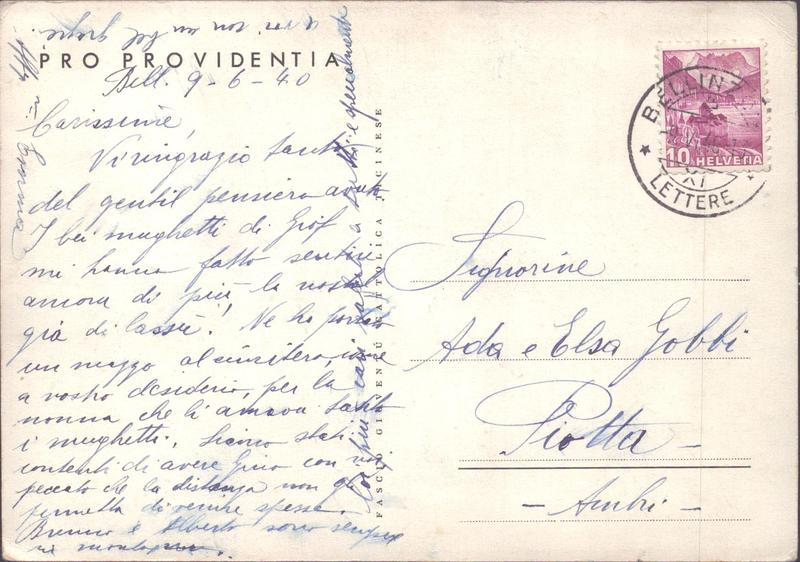 PRO PROVIDENTIA
Bell. 9-6-40
Carissime,
Vi ringrazio tanto
del gentil pensiero avuto
I bei mughetti di
mi hanno fatto sentire
ancora di più la nostal
gia di lassù! Ne ho portato
un mazzo al cimitero, come
a vostro desiderio, per la
nonna che li amava tanto
i mughetti. Siamo stati
contenti di avere Gino con noi
peccato che la distanza non gli
permetta di venire spesso.
Bruno e Alberto sono sempre
in montagna.
Coi più cari saluti a tutti e specialmente
a voi con un bel grazie.
Aff.
FASCIO GIOVENTÙ CATTOLICA TICINESE
10 HELVETIA
BELLINZ
XI
LETTERE
Signorine
Ada e Elsa Gobbi
Piotta -
- Ambri -